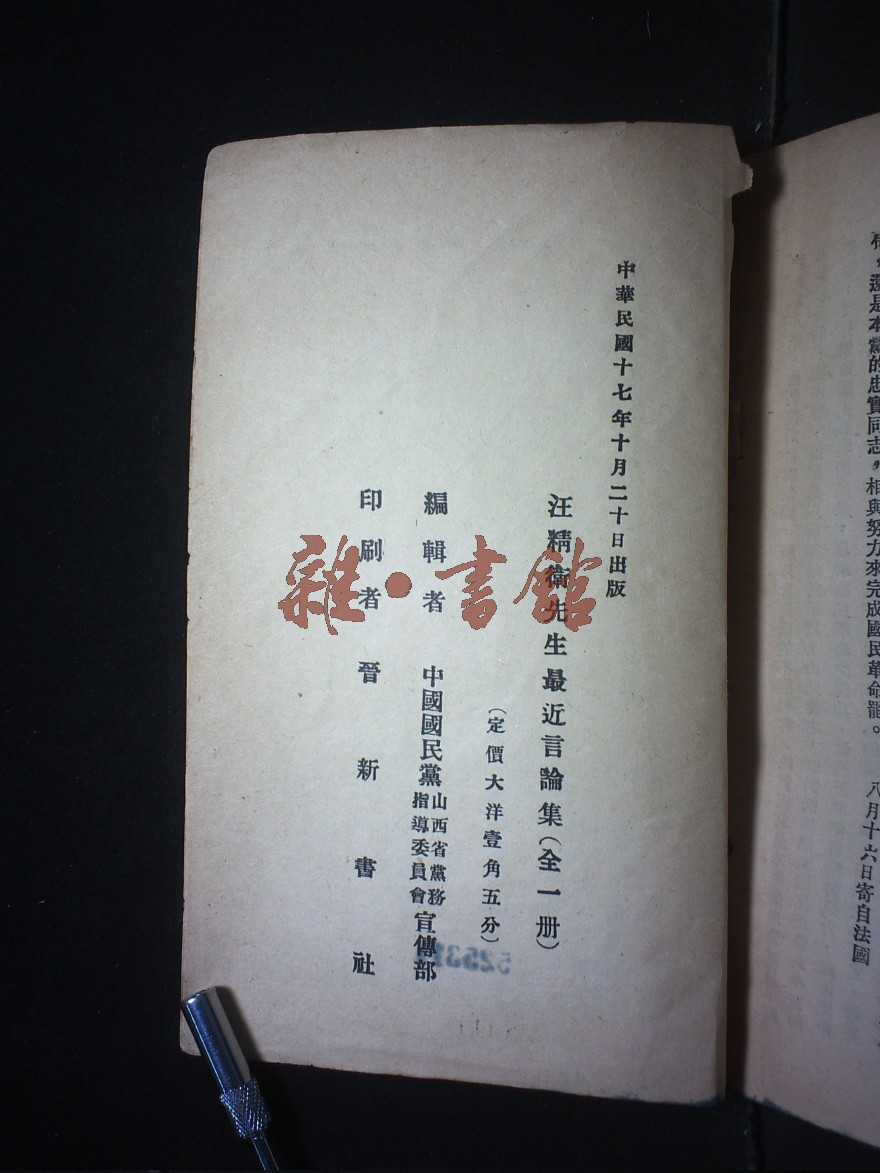 還是本黨的忠實同志，相與努力來完成國民革命罷。
八月十六日寄自法國
中華民國十七年十月二十日出版
汪精衛先生最近言論集（全一册）
（定價大洋壹角五分）
編輯者 中國國民黨山西省黨務指導委員會宣傳部
印刷者 晉新書社
雜·書館